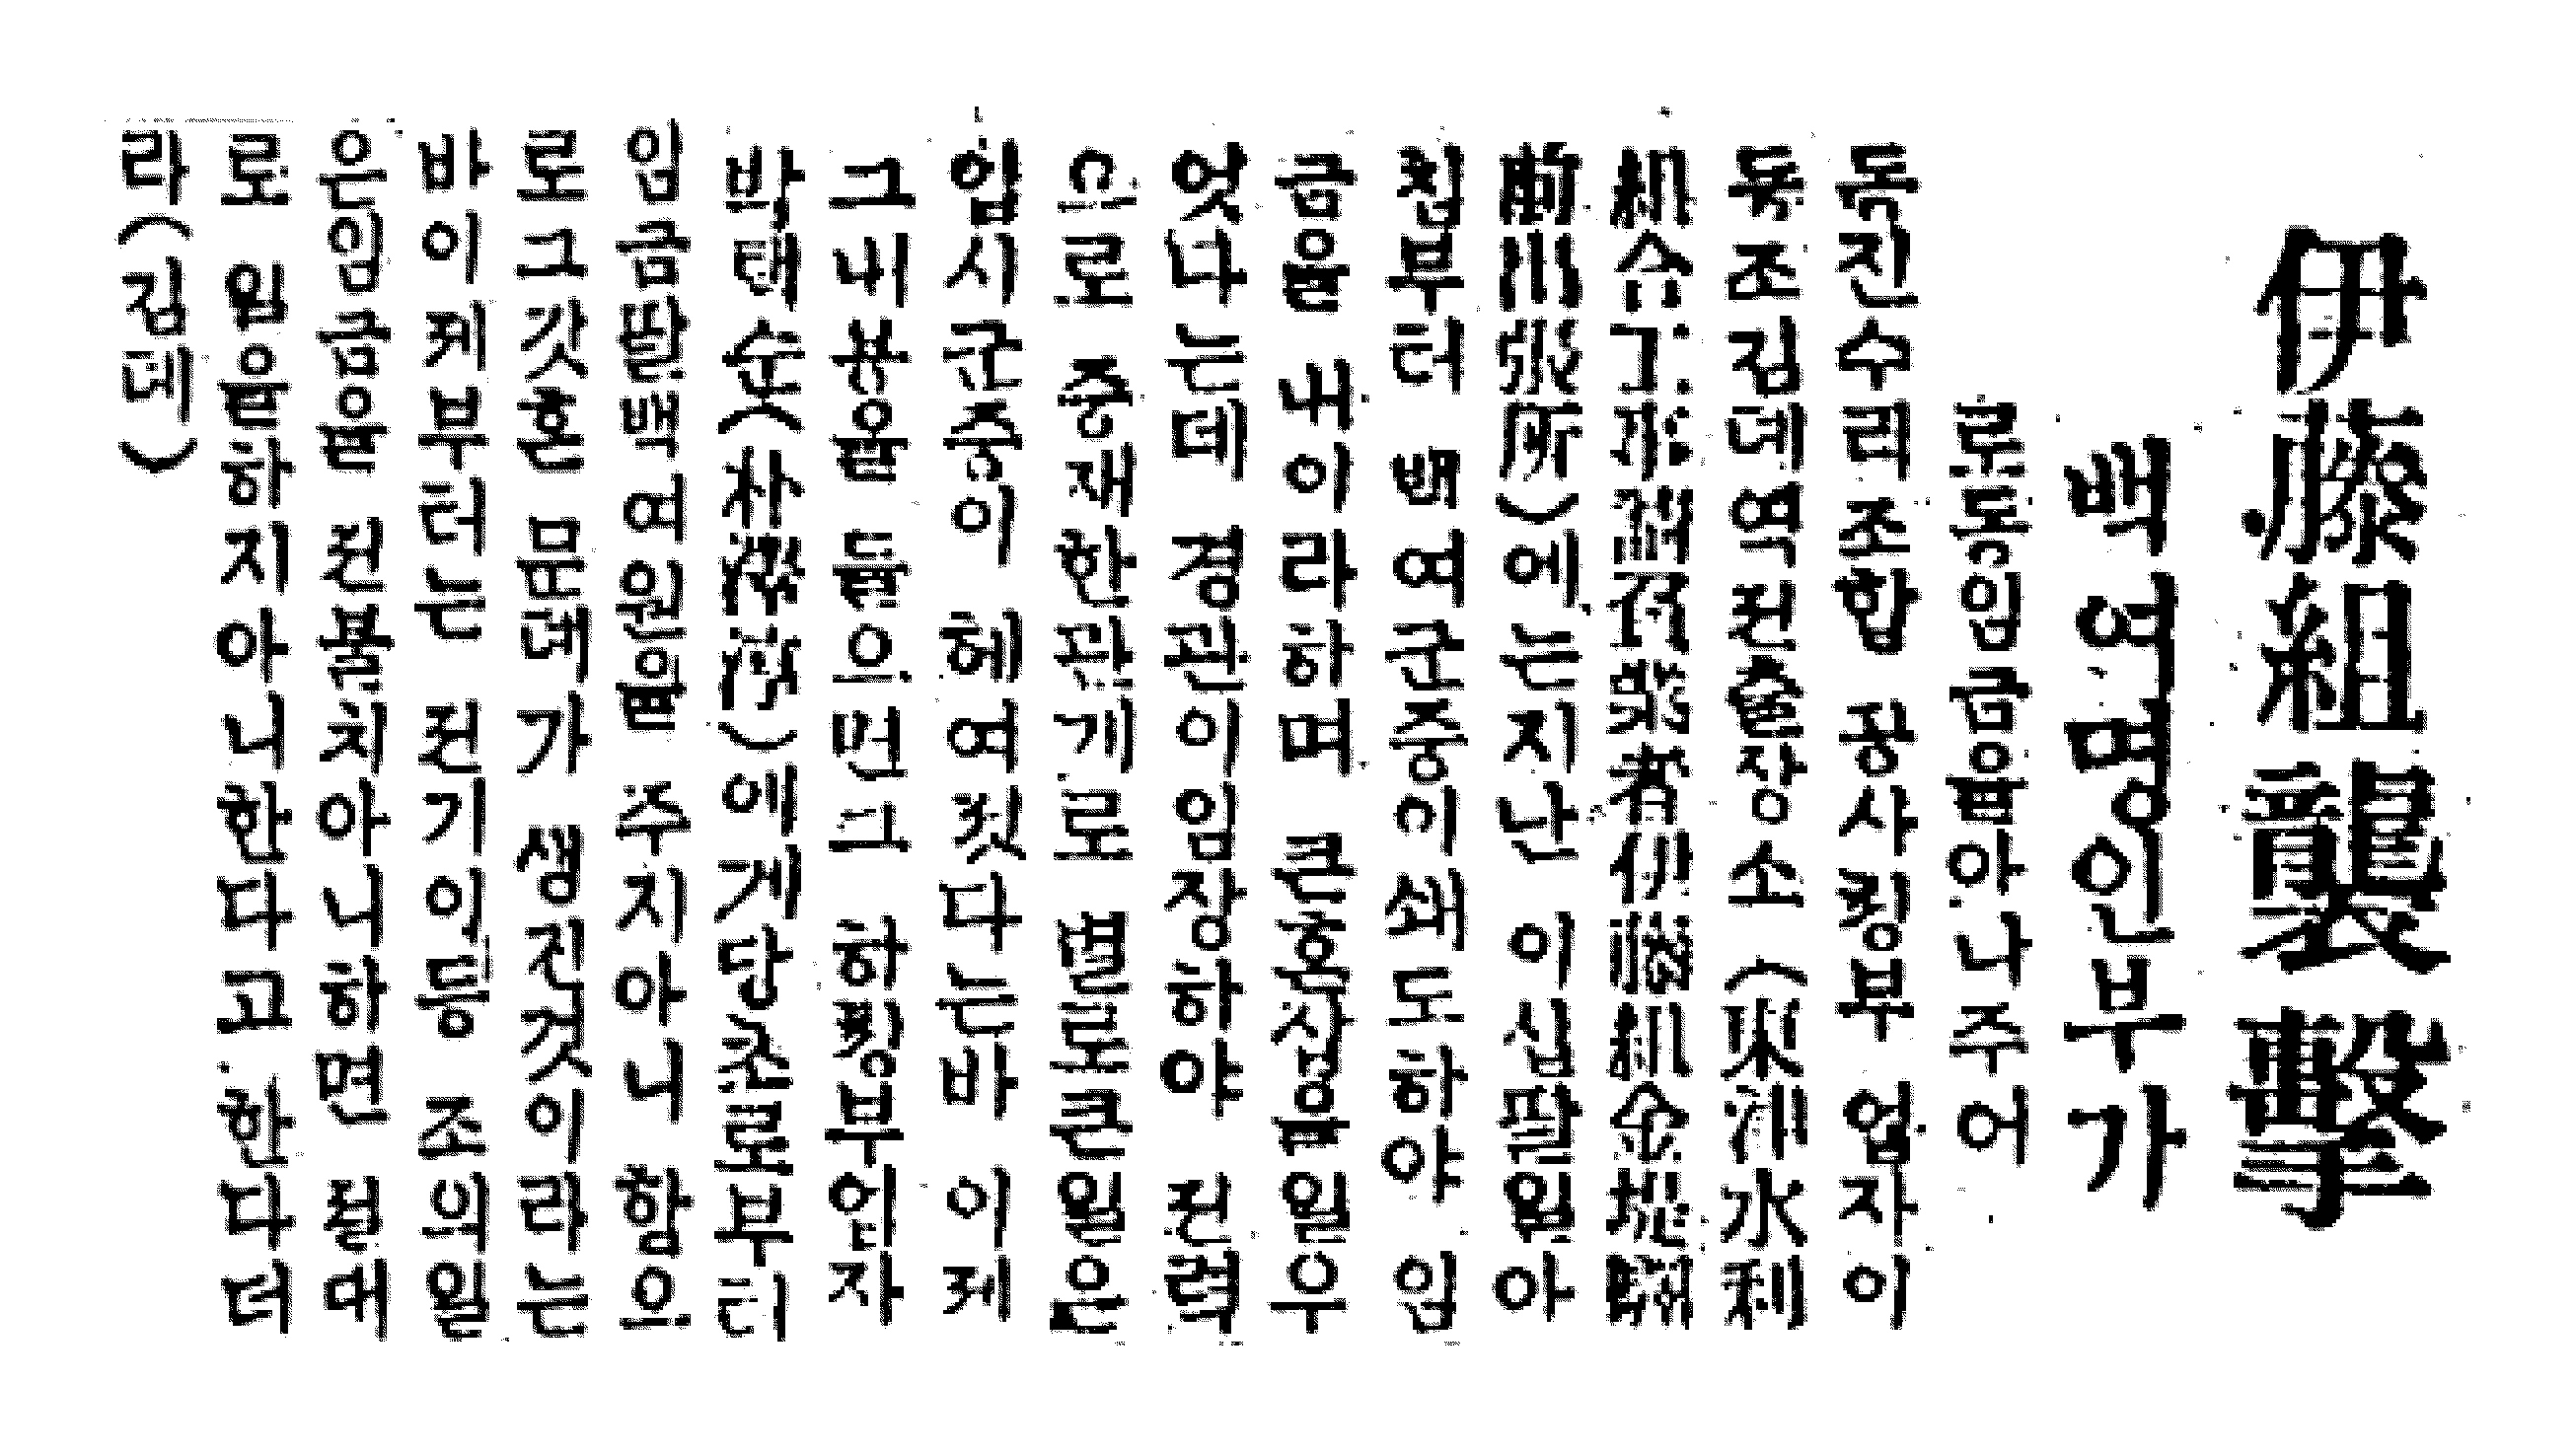 伊藤組襲擊
백여명인부가
로동임금을아니주어
동진수리조합 공사청부 업자이
등조김뎨역젼출장소(東津水利
組合工事請負業者伊藤組金堤驛
前出張所)에는지난 이십팔일아
침부터 백여군중이쇄도하야 임
금을 내이라하며 큰충상을일우
엇다는데 경관이임장하야 전력
으로 중재한관계로 별도큰일은
업시군중이 헤여젓다는바 이제
그내용을 들으면그 하청부업자
박태순( )에게당초로부터
임금팔백여원을 주지아니함으
로그갓흔 문뎨가 생긴것이라는
바이제부터는 뎐긔이등 조의일
은임금을 선불치아니하면 절대
로 일을하지아니한다고 한다더
라(김뎨)